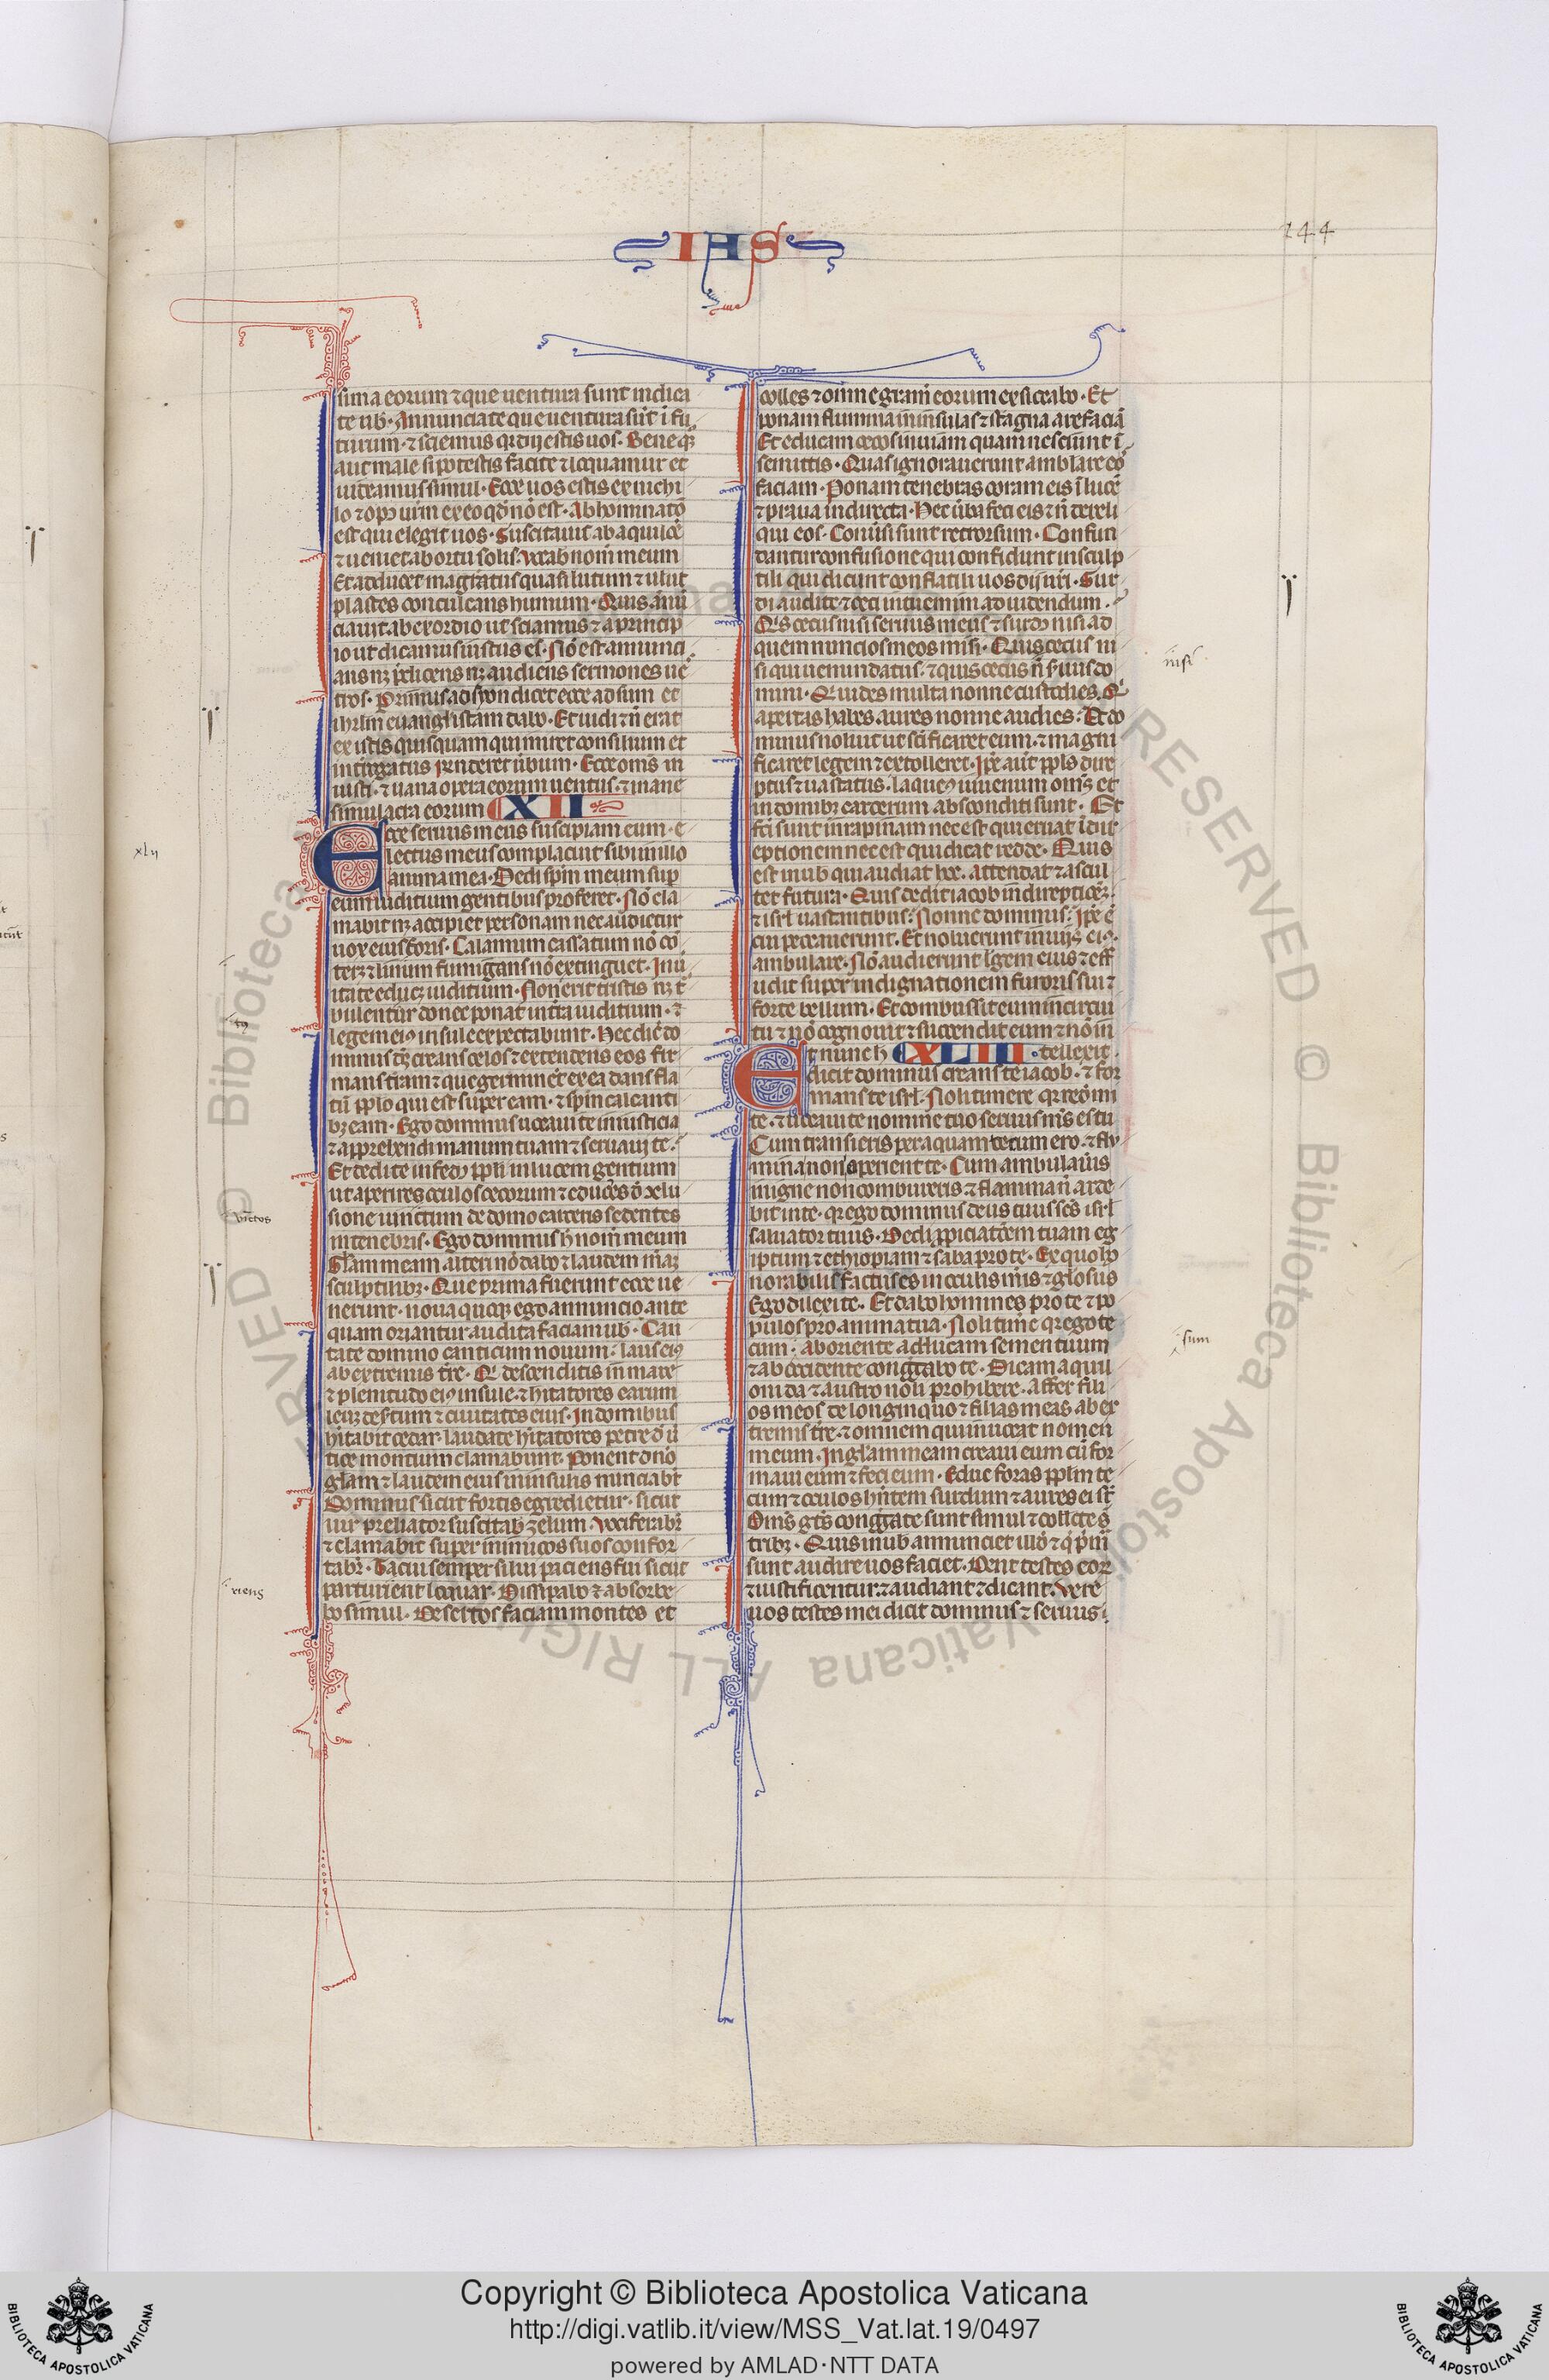 IHS
244
sima eorum ⁊ que uentura sunt indica
te uob̅. Annunciate que uentura sūt ī fu
turum. ⁊ sciemus q̄ dij estis uos. Bene q̄q̄
aut male si potestis facite ⁊ loquamur et
uideamus simul. Ecce uos estis ex nichi
lo ⁊ opꝰ ur̄m ex eo qd̄ nō est. Abhominatō
est qui elegit uos. Suscitaui ab aquilōe
⁊ ueniet ab ortu solis. uocab̄ nom̄ meum
Et adducet magr̄atus quasi lutum ⁊ uelut
plastes conculcans humum. Quis ānū
ciauit ab exordio ut sciamus ⁊ a princip
io ut dicamus iustus es. Nō est annunci
ans nꝫ p̄dicens nꝫ audiens sermones ue
stros. Primus ad syon dicet ecce adsum et
ihrl̄m euanglistam dabo. Et uidi ⁊ n̄ erat
ex istis quisquam qui iniret consilium et
int̄rogatus rn̄deret uerbum. Ecce om̄s in
iusti. ⁊ uana opera eorum uentus. ⁊ inane
simulacra eorum XLII
Ecce seruus meus suscipiam eum. e
lectus meus complacuit sibi in illo
anima mea. Dedi spm̄ meum sup̄
eum iuditium gentibus proferet. Nō cla
mabit nꝫ accipiet personam nec audietur
uox eius foris. Calamum cassatum nō cō
teret ⁊ linum fumigans nō extinguet. In ue
ritate educet iuditium. Non erit tristis nꝫ t
bulentur donec ponat in terra iuditium. ⁊
legem eiꝰ insule expectabunt. Hec dic̄ do
minus dꝫ creans celos ⁊ extendens eos fir
mans tr̄am ⁊ que germinēt ex ea dans fla
tū pplo qui est super eam. ⁊ spm̄ calcanti
bꝫ eam. Ego dominus uocaui te in iusticia
⁊ apprehendi manum tuam ⁊ seruaui te.
Et dedi te in fedꝰ ppl̄i in lucem gentium
ut aperires oculos cecorum ⁊ educeres d̄ oclu
sione uinctum de domo carceris sedentes
in tenebris. Ego dominus h̄ nom̄ meum
Gl̄am meam alteri nō dabo ⁊ laudem meā
sculptilibꝫ. Que prima fuerunt ecce ue
nerunt. noua quoqꝫ ego annuncio ante
quam oriantur audita faciam uob̄. Can
tate domino canticum nouum. laus eiꝰ
ab extremis tr̄e. Qi descenditis in mare
⁊ plenitudo eiꝰ insule. ⁊ hītatores earum
leuetur desertum ⁊ ciuitates eius. In domibus
hītabit cedar. laudate hītatores petre d̄ ū
tice montium clamabunt. Ponent dn̄o
gl̄am ⁊ laudem eius in insulis nunciabt̄
Dominus sicut fortis egredietur. sicut
uir preliator suscitab̄ zelum. Vociferabit̄
⁊ clamabit super inimicos suos confor
tabit̄. Tacui semper silui paciens fui sicut
parturient loquar. Dissipabo ⁊ absorbe
bo simul. Desertos faciam montes et
colles ⁊ omne gramē eorum exsiccabo. Et
ponam flumina in insulas ⁊ stagna arefaciā
Et educam cecos in uiam quam nesciunt ī
semitis. Quas ignorauerunt amblare eos
faciam. Ponam tenebras coram eis ī lucē
⁊ praua in directa. Hec ūba feci eis ⁊ n̄ dereli
qui eos. Conūsi sunt retrorsum. Confun
dantur confusione qui confidunt in sculp
tili qui dicunt conflatili uos dij nr̄i. Sur
di audite ⁊ ceci intuemini ad uidendum.
Qis cecus nisi seruus meus ⁊ surdꝰ nisi ad
quem nuncios meos misi. Quis cecus ni
si qui uenundatus. ⁊ quis cecus n̄ seruus do
mini. Qui des multa nonne custodies. Qi
apertas habes aures nonne audies. Et do
minus uoluit ut sc̄ificaret eum. ⁊ magni
ficaret legem ⁊ extolleret. Ipe aūt ppl̄s dire
ptus ⁊ uastatus. laqueꝰ iuuenum om̄s et
in domibꝫ carcerum absconditi sunt. Et
fc̄i sunt in rapinam nec est qui eruat ī dir
eptionem nec est qui dicat redde. Quis
est in uob̄ qui audiat hoc. attendat ⁊ ascul
tet futura. Quis dedit iacob in direptionē
⁊ isrl̄ uastantibus. Nonne dominus. Ipe ē
cui peccauerunt. Et noluerunt in uijs eiꝰ
ambulare. Nō audierunt legem eius ⁊ eff
udit super indignationem furoris sui ⁊
forte bellum. Et combussit eum in circui
tu ⁊ nō cognouit ⁊ succendit eum ⁊ nō in
Et nunc h XLIII. tellexit.
dicit dominus creans te iacob. ⁊ for
mans te isrl̄. Noli timere q̄ redemi
te. ⁊ uocaui te nomine tuo seruus m̄s es tu
Cum transieris per aquam tecum ero. ⁊ flu
mina non operient te. Cum ambulaūis
in igne non combureris ⁊ flamma n̄ arde
bit in te. q̄ ego dominus deus tuus sc̄s isrl̄
saluator tuus. Dedi ppiciatōem tuam eg
iptum ⁊ ethiopiam ⁊ saba pro te. Ex quo ho
norabilis factus es in oculis m̄is ⁊ gl̄osus
Ego dilexi te. Et dabo homines pro te ⁊ po
pulos pro anima tua. Noli timē q̄ ego te
cum. ab oriente adducam semen tuum
⁊ ab occidente congr̄abo te. Dicam aqui
oni da ⁊ austro noli prohibere. affer fili
os meos de longinquo ⁊ filias meas ab ex
tremis tr̄e. ⁊ omnem qui inuocat nomen
meum. In gl̄am meam creaui eum cū for
maui eum ⁊ feci eum. Educ foras ppl̄m ce
cum ⁊ oculos hn̄tem surdum ⁊ aures ei st̄
Om̄s gt̄s congr̄ate sunt simul ⁊ collecte s̄
tribꝫ. Quis in uob̄ annunciet istud ⁊ q̄ pim̄
sunt audire uos faciet. Dent testes eoꝝ
⁊ iustificentur ⁊ audiant ⁊ dicant. Vere
uos testes mei dicit dominus ⁊ seruus
xlij
tꝫ
uīctos
riens
nisi
sum
Copyright © Biblioteca Apostolica Vaticana
http://digi.vatlib.it/view/MSS_Vat.lat.19/0497
powered by AMLAD·NTT DATA
BIBLIOTECA APOSTOLICA VATICANA
BIBLIOTECA APOSTOLICA VATICANA